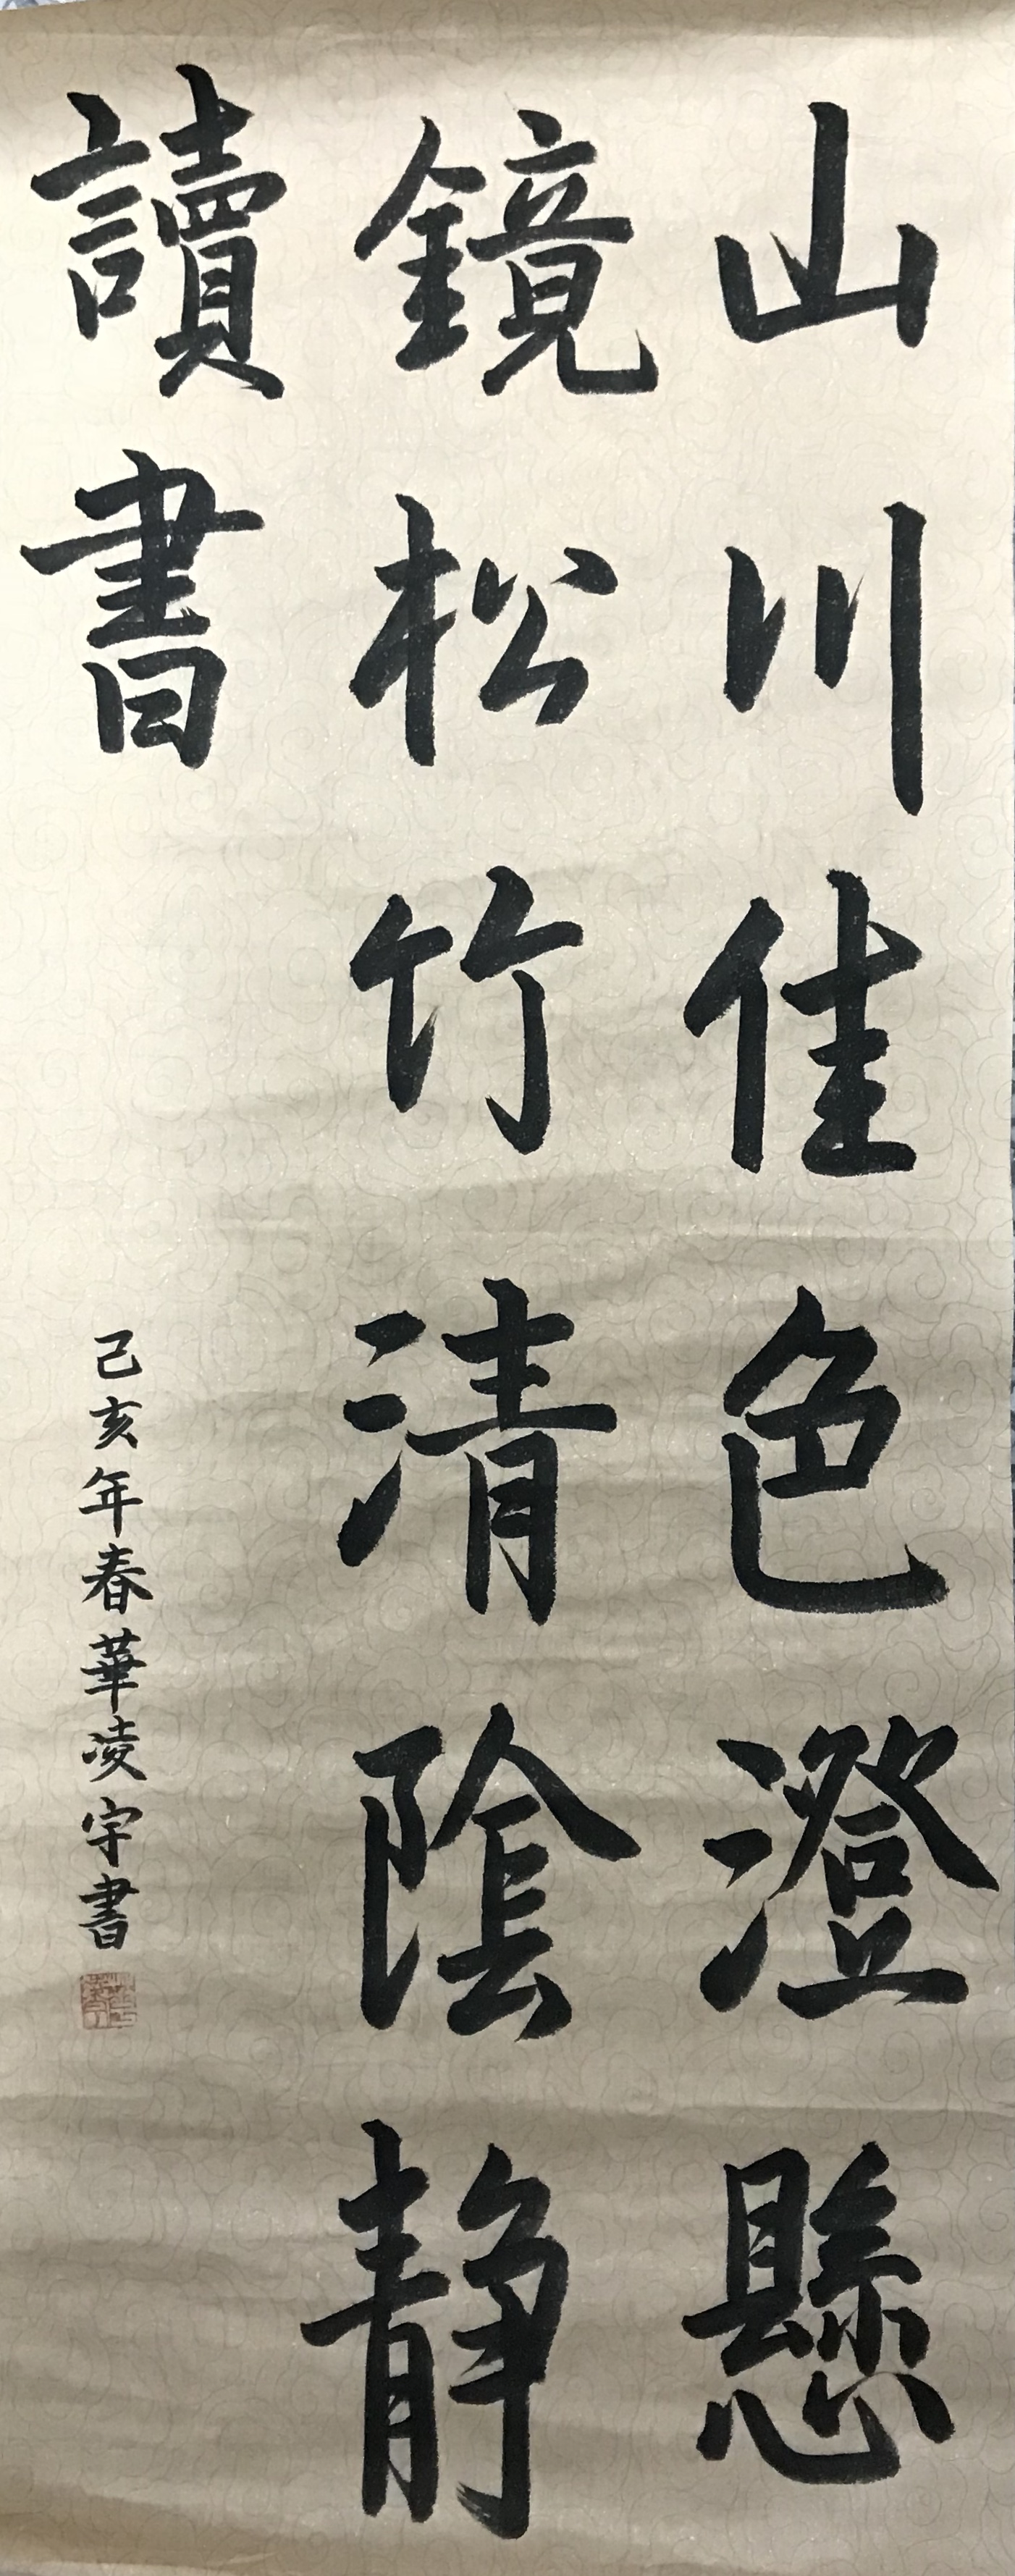 山川佳色澄懸
鏡松竹清陰靜
讀書
己亥年春華凌宇書